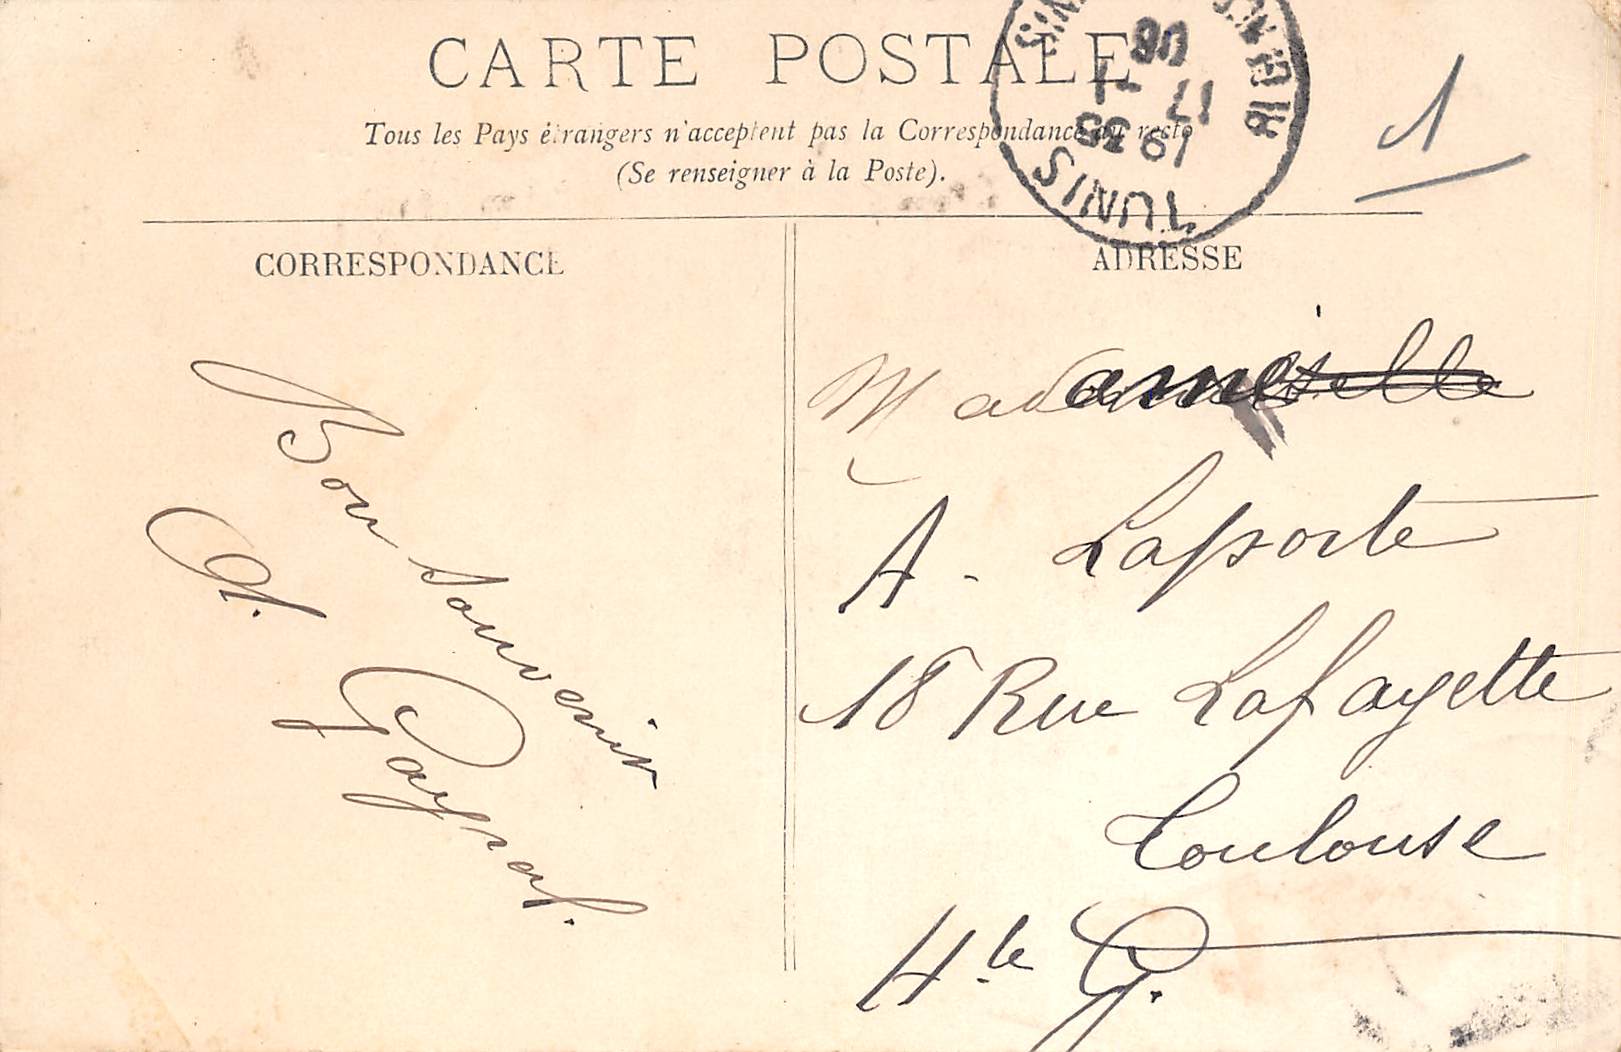 CARTE POSTALE
Tous les Pays étrangers n'acceptent pas la Correspondance au recto
(Se renseigner à la Poste).
TUNIS
19 35
17 -1
06
1
CORRESPONDANCE
Bon souvenir
ADRESSE
Madame
A - Laporte
18 Rue Lafayette
Toulouse
Hte G.